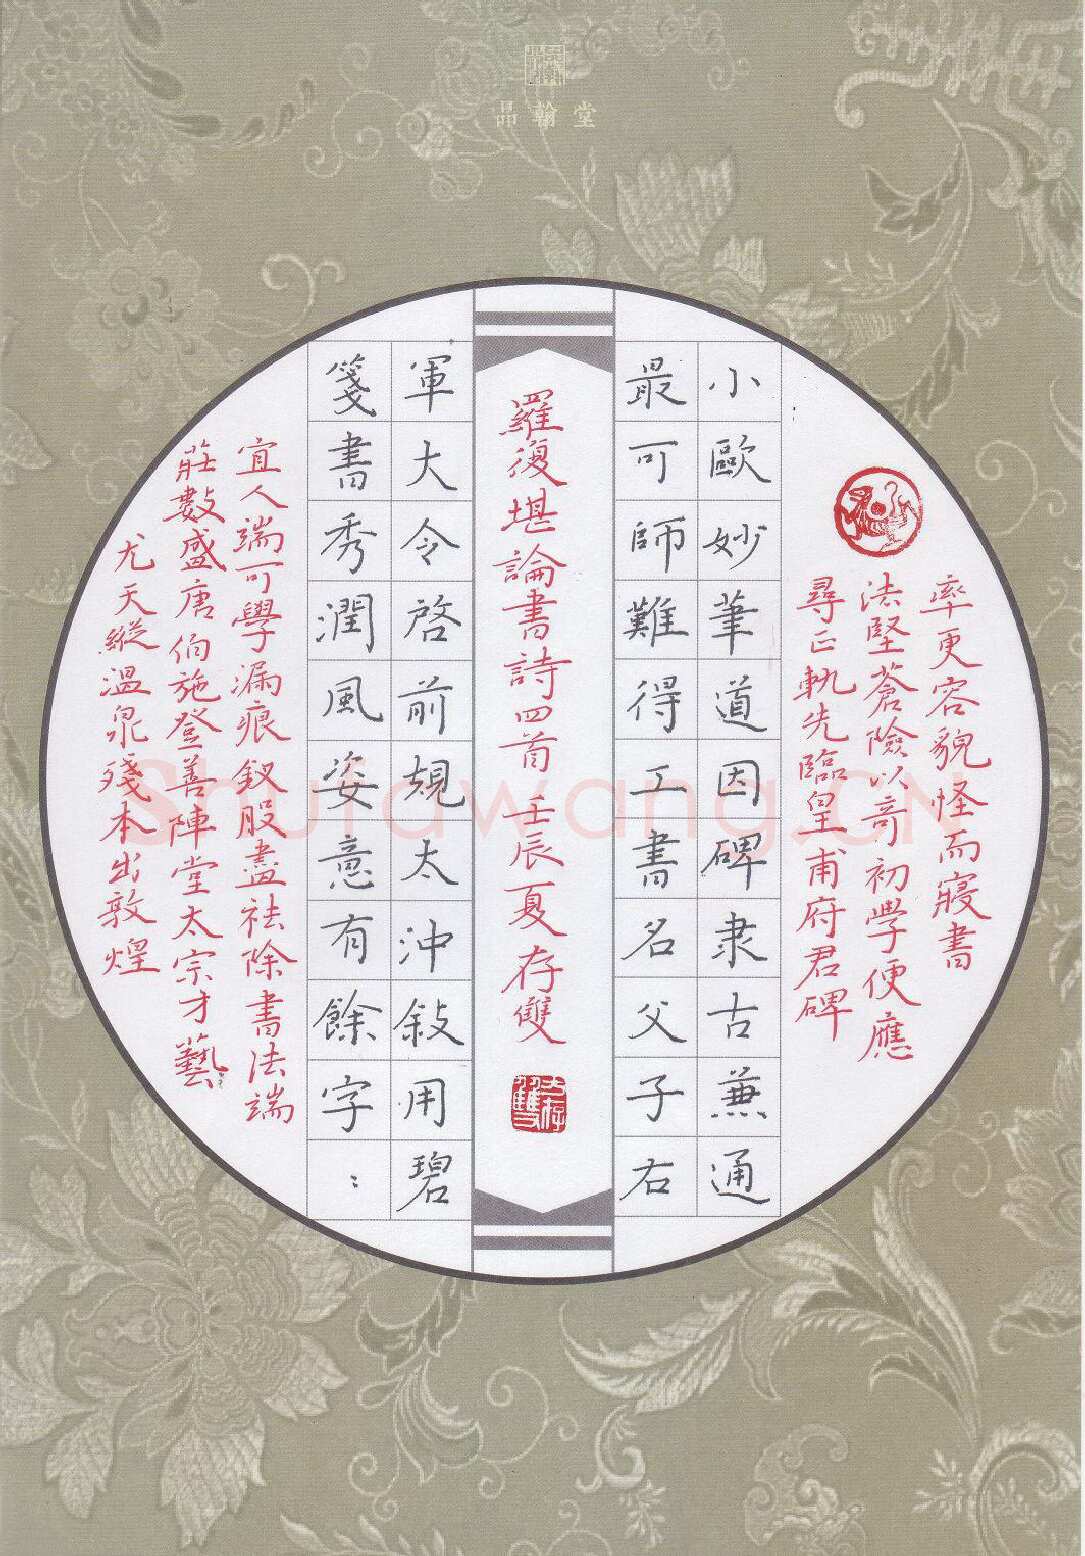 品翰堂
率更容貌怪而寢書
法堅蒼險以奇初學便應
尋正軌先臨皇甫府君碑
小歐妙筆道因碑隶古兼通
最可師難得工書名父子右
羅復堪論書詩四首 壬辰夏存雙
軍大令啓前規太沖敍用碧
箋書秀潤風姿意有餘字:
宜人端可學漏痕釵股盡祛除書法端
莊數盛唐伯施登善陣堂太宗才藝
尤天縱溫泉殘本出敦煌
Shufawang.CN